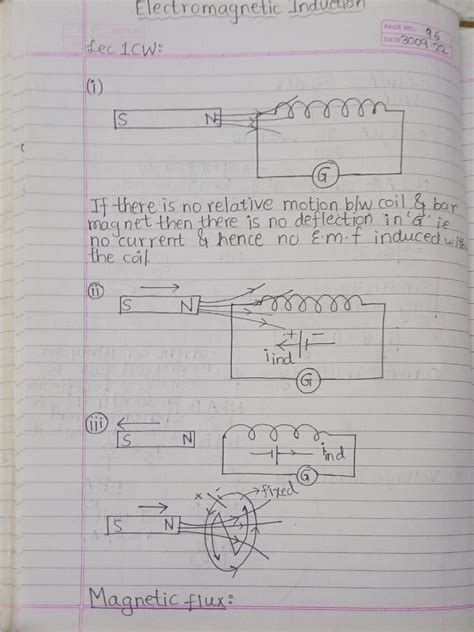 Electromagnetic Induction
PAGE NO.: 96
DATE: 3009.22
Lec 1CW:
(i)
S N
G
If there is no relative motion b/w coil & bar
magnet then there is no deflection in 'G' ie
no current & hence no E.m.f induced with
the coil.
(ii)
S N
+ -
i ind
G
(iii)
S N
ind
G
fixed
S N
N
Magnetic flux: